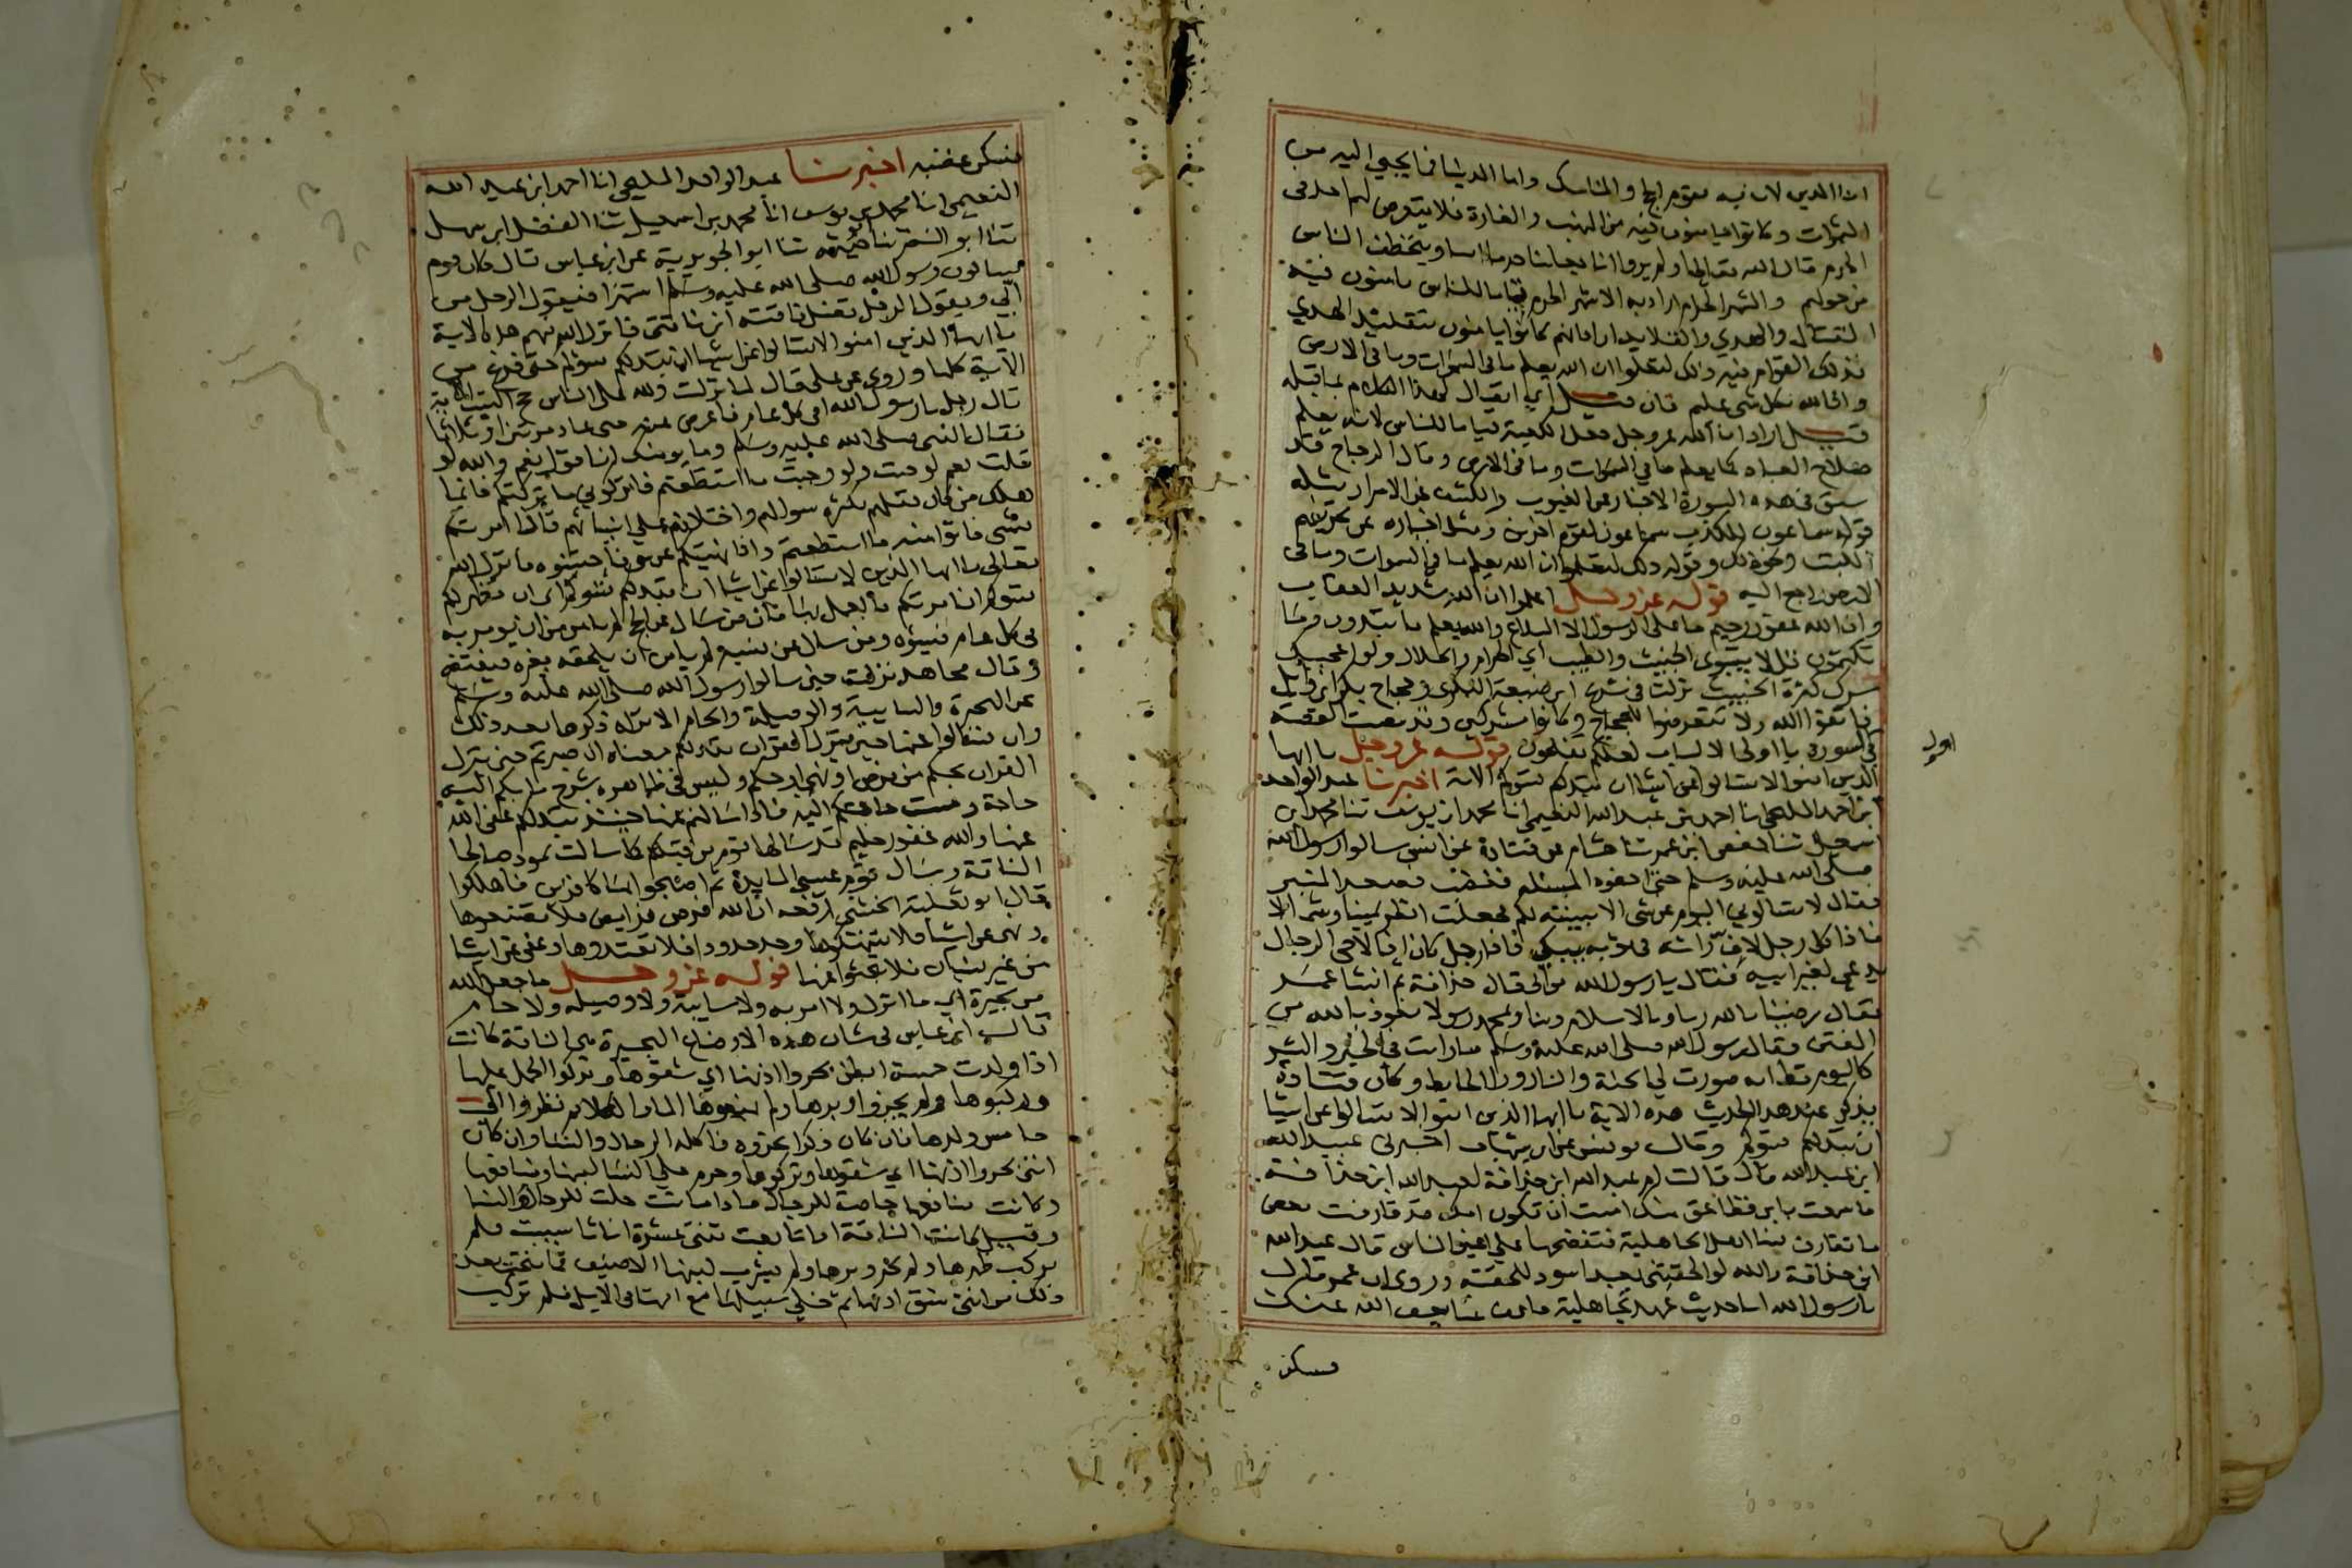 اما الدين لان به يقوم الحج والمناسك واما الدنيا فما يجبى اليه من
الثمرات وكانوا يامنون فيه من النهب والغارة فلا يتعرض لهم احد في
الحرم قال الله تعالى اولم يروا انا جعلنا حرما امنا ويتخطف الناس
من حولهم والشهر الحرام اراد به الاشهر الحرم قياما للناس يامنون فيه
القتال والهدي والقلايد اراد انهم كانوا يامنون بتقليد الهدي
فذلك القوام فيه ذلك لتعلموا ان الله يعلم ما في السموات وما في الارض
وان الله بكل شي عليم فان قيل اي اتصال لهذا الكلام بما قبله
قيل اراد ان الله عز وجل جعل الكعبة قياما للناس لانه يعلم
صلاح العباد كما يعلم ما في السموات وما في الارض وقال الزجاج قد
سبق في هذه السورة الاخبار عن الغيوب والكشف عن الاسرار مثل
قوله سماعون للكذب سماعون لقوم اخرين ومثل اخباره عن تحريفهم
الكتب ونحو ذلك وقوله ذلك لتعلموا ان الله يعلم ما في السموات وما في
الارض راجع اليه قوله عز وجل اعلموا ان الله شديد العقاب
وان الله غفور رحيم ما على الرسول الا البلاغ والله يعلم ما تبدون وما
تكتمون قل لا يستوي الخبيث والطيب اي الحرام والحلال ولو اعجبك
سرك كثرة الخبيث نزلت في شريح ابن ضبيعة البكري وحجاج بكر ابن وايل
فاتقوا الله ولا تتعرضوا للحجاج وكانوا مشركين وقد مضت القصة
في السورة يا اولى الالباب لعلكم تفلحون قوله عز وجل يا ايها
الذين امنوا لا تسالوا عن اشيا ان تبد لكم تسوكم الاية اخبرنا عبد الواحد
ابن احمد المليحي انا احمد بن عبد الله النعيمي انا محمد ابن يوسف ثنا محمد ابن
اسمعيل ثنا حفص ابن عمر ثنا هشام عن قتادة عن انس سالوا رسول الله
صلى الله عليه وسلم حتى احفوه المسئلة فغضب فصعد المنبر
فقال لا تسالوني اليوم عن شي الا بينته لكم فجعلت انظر يمينا وشمالا
فاذا كل رجل لاف راسه في ثوبه يبكي فاذا رجل كان اذا لاحى الرجال
يدعى لغير ابيه فقال يا رسول الله من ابي قال حذافة ثم انشا عمر
فقال رضينا بالله ربا وبالاسلام دينا وبمحمد رسولا نعوذ بالله من
الفتن فقال رسول الله صلى الله عليه وسلم ما رايت في الخير والشر
كاليوم قط انه صورت لي الجنة والنار ورا الحايط وكان قتادة
يذكر عند هذا الحديث هذه الاية يا ايها الذين امنوا لا تسالوا عن اشيا
ان تبد لكم تسوكم وقال يونس عن ابن شهاب اخبرني عبيد الله
ابن عبد الله قال قالت ام عبد الله ابن حذافة لعبد الله ابن حذافة
ما سمعت بابن قط اعق منك امنت ان تكون امك قد قارفت بعض
ما تقارف نسا اهل الجاهلية فتفضحها على اعين الناس قال عبد الله
ابن حذافة والله لو الحقني بعبد اسود للحقته وروى ان عمر قال
يا رسول الله انا حديث عهد بجاهلية فاعف عنا يعف الله عنك
فسكن
اول
فسكن غضبه اخبرنا عبد الواحد المليحي انا احمد ابن عبد الله
النعيمي انا محمد بن يوسف انا محمد بن اسمعيل ثنا الفضل ابن سهل
ثنا ابو النضر ثنا خيثمة ثنا ابو الجويرية عن ابن عباس قال كان قوم
يسالون رسول الله صلى الله عليه وسلم استهزا فيقول الرجل من
ابي ويقول الرجل تضل ناقته اين ناقتي فانزل الله فيهم هذه الاية
يا ايها الذين امنوا لا تسالوا عن اشيا ان تبد لكم تسوكم حتى فرغ من
الاية كلها وروى عن علي قال لما نزلت ولله على الناس حج البيت الاية
قال رجل يا رسول الله افي كل عام فاعرض عنه حتى عاد مرتين او ثلاثا
فقال النبي صلى الله عليه وسلم وما يومنك ان اقول نعم والله لو
قلت نعم لوجبت ولو وجبت ما استطعتم فاتركوني ما تركتكم فانما
هلك من كان قبلكم بكثرة سوالهم واختلافهم على انبيائهم فاذا امرتكم
بشي فاتوا منه ما استطعتم واذا نهيتكم عن شي فاجتنبوه فانزل الله
تعالى يا ايها الذين لا تسالوا عن اشيا ان تبد لكم تسوكم اي ان تظهر لكم
تسوكم ان امرتكم بالعمل بها فان من سال عن الحج لم يامن من ان يومر به
في كل عام فيسؤه ومن سال عن نسبه لم يامن ان يلحقه بغيره فيفتضح
وقال مجاهد نزلت حين سالوا رسول الله صلى الله عليه وسلم
عن البحيرة والسايبة والوصيلة والحام الا تراه ذكرها بعد ذلك
وان تسالوا عنها حين ينزل القران تبد لكم معناه ان صبرتم حتى ينزل
القران بحكم من فرض او نهي او حكم وليس في ظاهره شرح ما بكم اليه
حاجة ومست حاجتكم اليه فاذا سالتم عنها حينئذ تبد لكم عفى الله
عنها والله غفور حليم قد سالها قوم من قبلكم كما سالت ثمود صالحا
الناقة وسال قوم عيسى المايدة ثم اصبحوا بها كافرين فاهلكوا
قال ابو ثعلبة الخشني ان الله فرض فرايض فلا تضيعوها
ونهى عن اشيا فلا تنتهكوها وحد حدودا فلا تعتدوها وعفى عن اشيا
من غير نسيان فلا تبحثوا عنها قوله عز وجل ما جعل الله
من بحيرة اي ما انزل ولا امر به ولا سايبة ولا وصيلة ولا حام
قال ابن عباس في شان هذه الاوضاع البحيرة هي الناقة كانت
اذا ولدت خمسة ابطن بحروا اذنها اي شقوها وتركوا الحمل عليها
ولم يركبوها ولم يجزوا وبرها ولم يمنعوها الما والكلا ثم نظروا الى
خامس ولدها فان كان ذكرا نحروه فاكله الرجال والنسا وان كان
انثى بحروا اذنها اي شقوها وتركوها وحرم على النسا لبنها ومنافعها
وكانت منافعها خاصة للرجال فاذا ماتت حلت للرجال والنسا
وقيل كانت الناقة اذا تابعت ثنتي عشرة اناثا سيبت فلم
يركب ظهرها ولم يجز وبرها ولم يشرب لبنها الا ضيف فما نتجت بعد
ذلك من انثى شق اذنها ثم خلي سبيلها مع امها في الابل فلم تركب